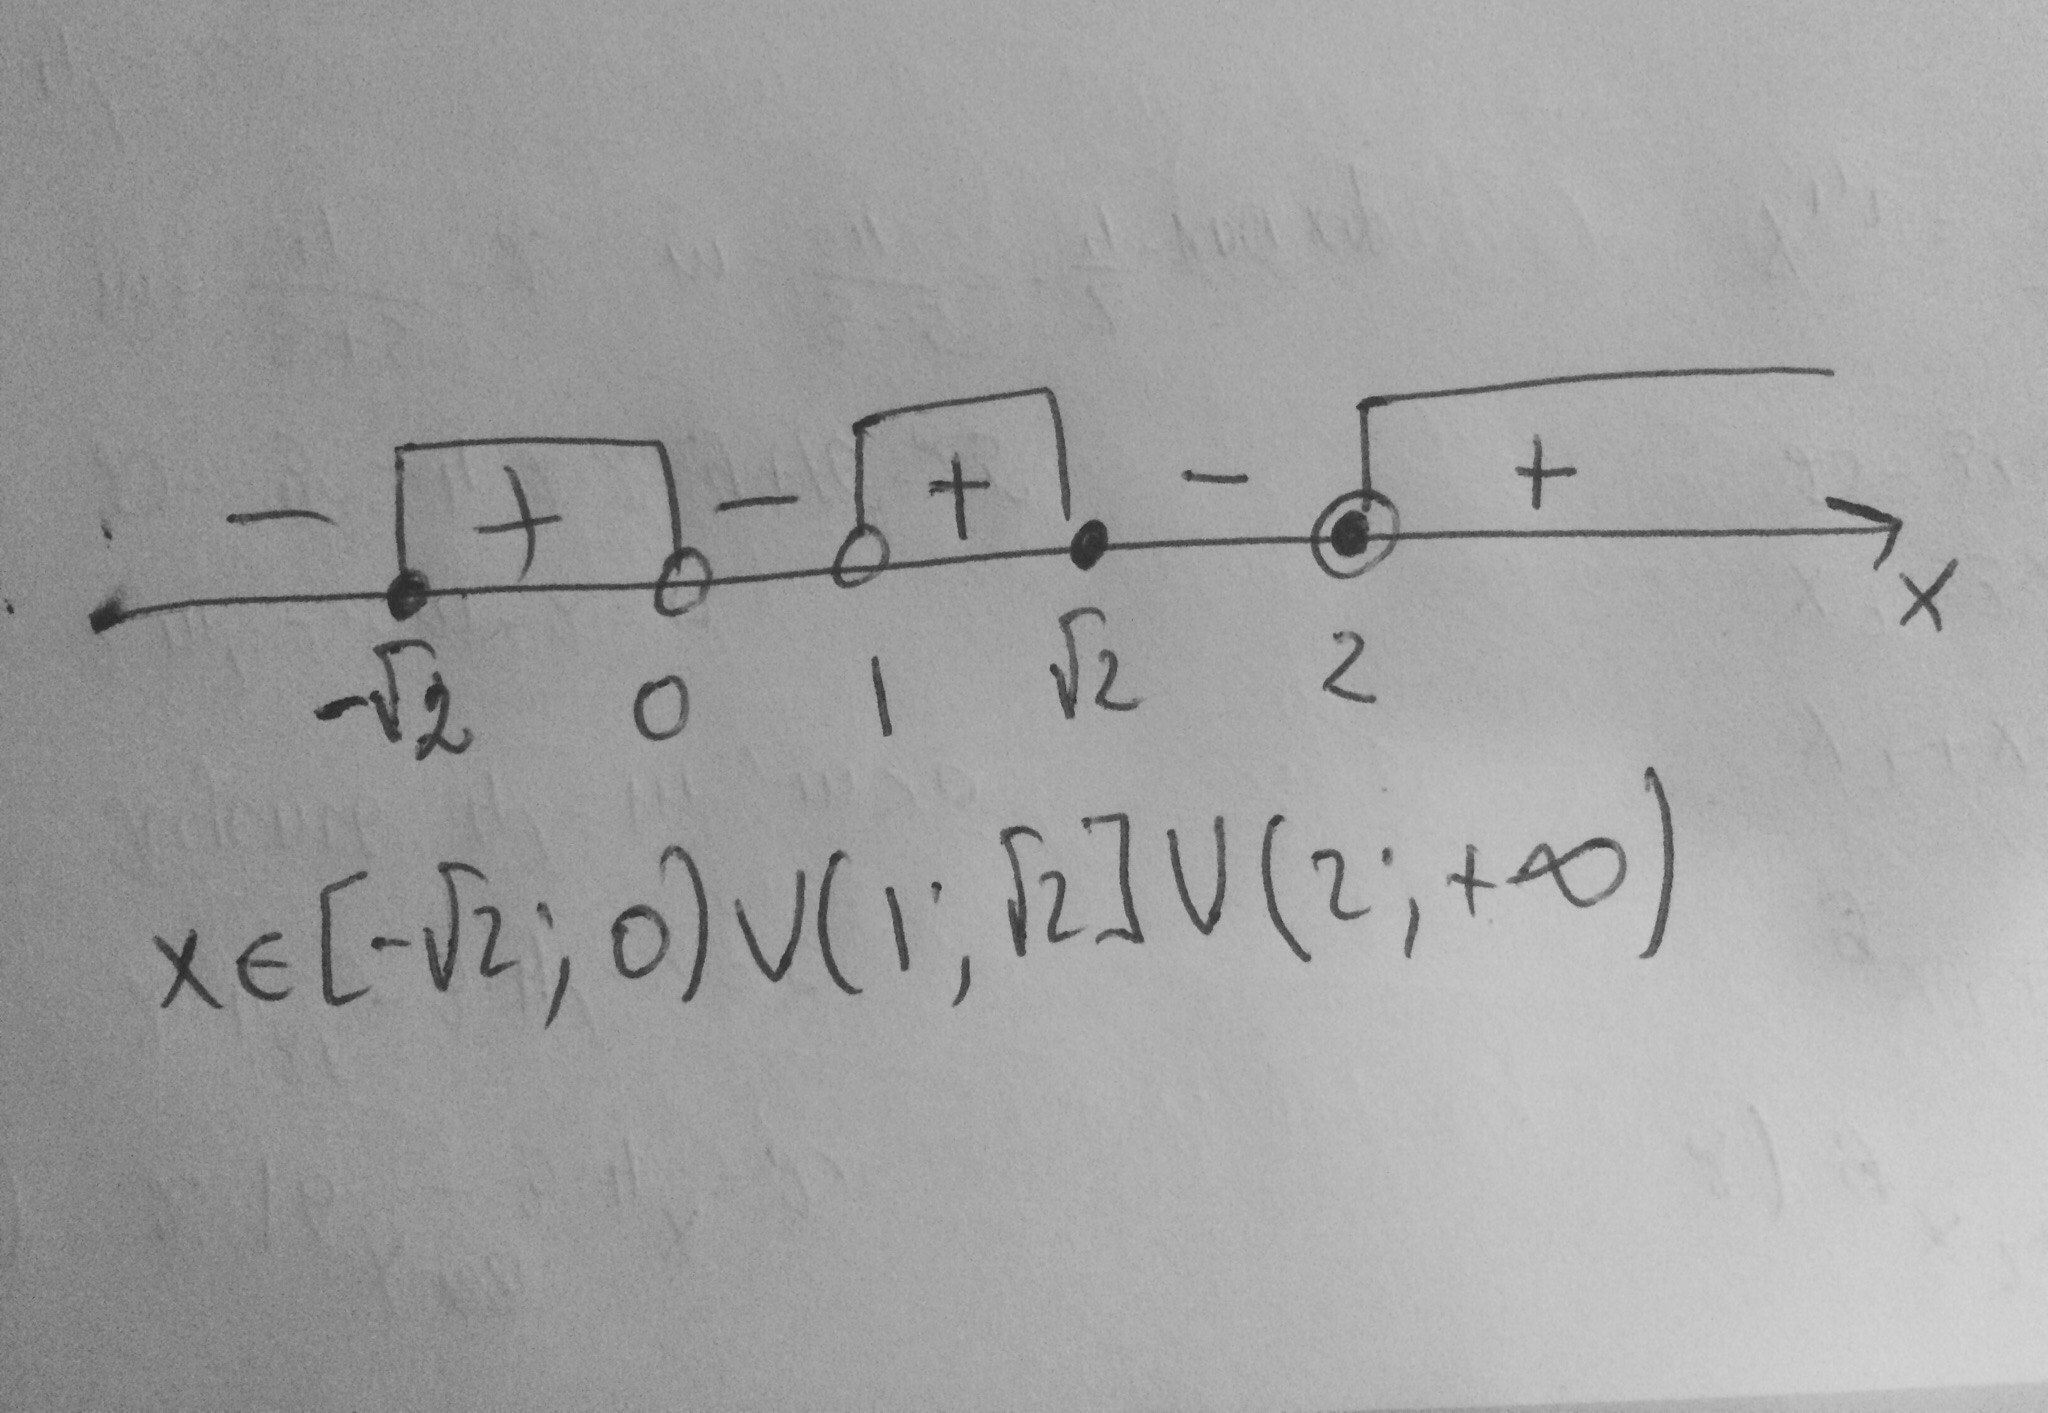 - + - + - +
-√2 0 1 √2 2 x
x∈[-√2; 0)∪(1; √2]∪(2; +∞)